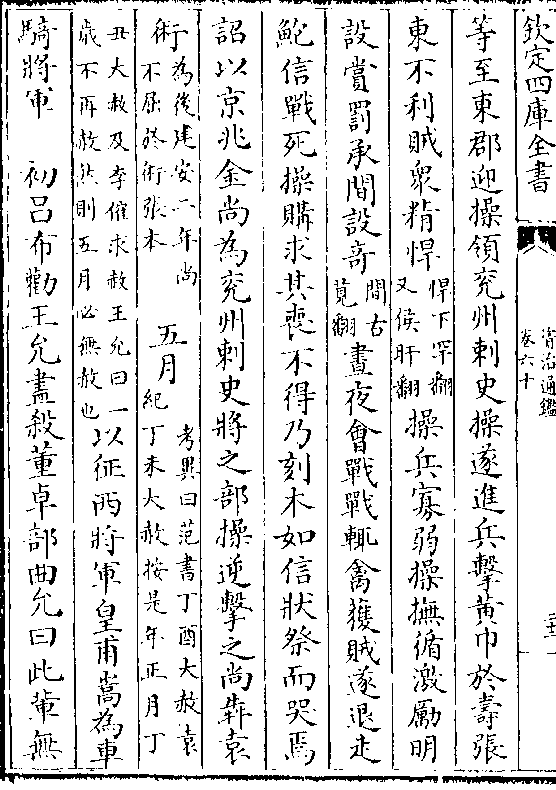 欽定四庫全書
資治通鑑
卷六十
等至東郡迎操領兖州刺史操遂進兵擊黃巾於壽張
東不利賊衆精悍
悍下罕翻
又侯旰翻
操兵寡弱操撫循激厲明
設賞罰承間設奇
間古
莧翻
晝夜會戰戰輒禽獲賊遂退走
鮑信戰死操購求其喪不得乃刻木如信狀祭而哭焉
詔以京兆金尚為兖州刺史將之部操逆擊之尚犇袁
術
為後建安二年尚
不屈於術張本
五月
考異曰范書丁酉大赦袁
紀丁未大赦按是年正月丁
丑大赦及李傕求赦王允曰一
歲不再赦然則五月必無赦也
以征西將軍皇甫嵩為車
騎將軍　初呂布勸王允盡殺董卓部曲允曰此輩無